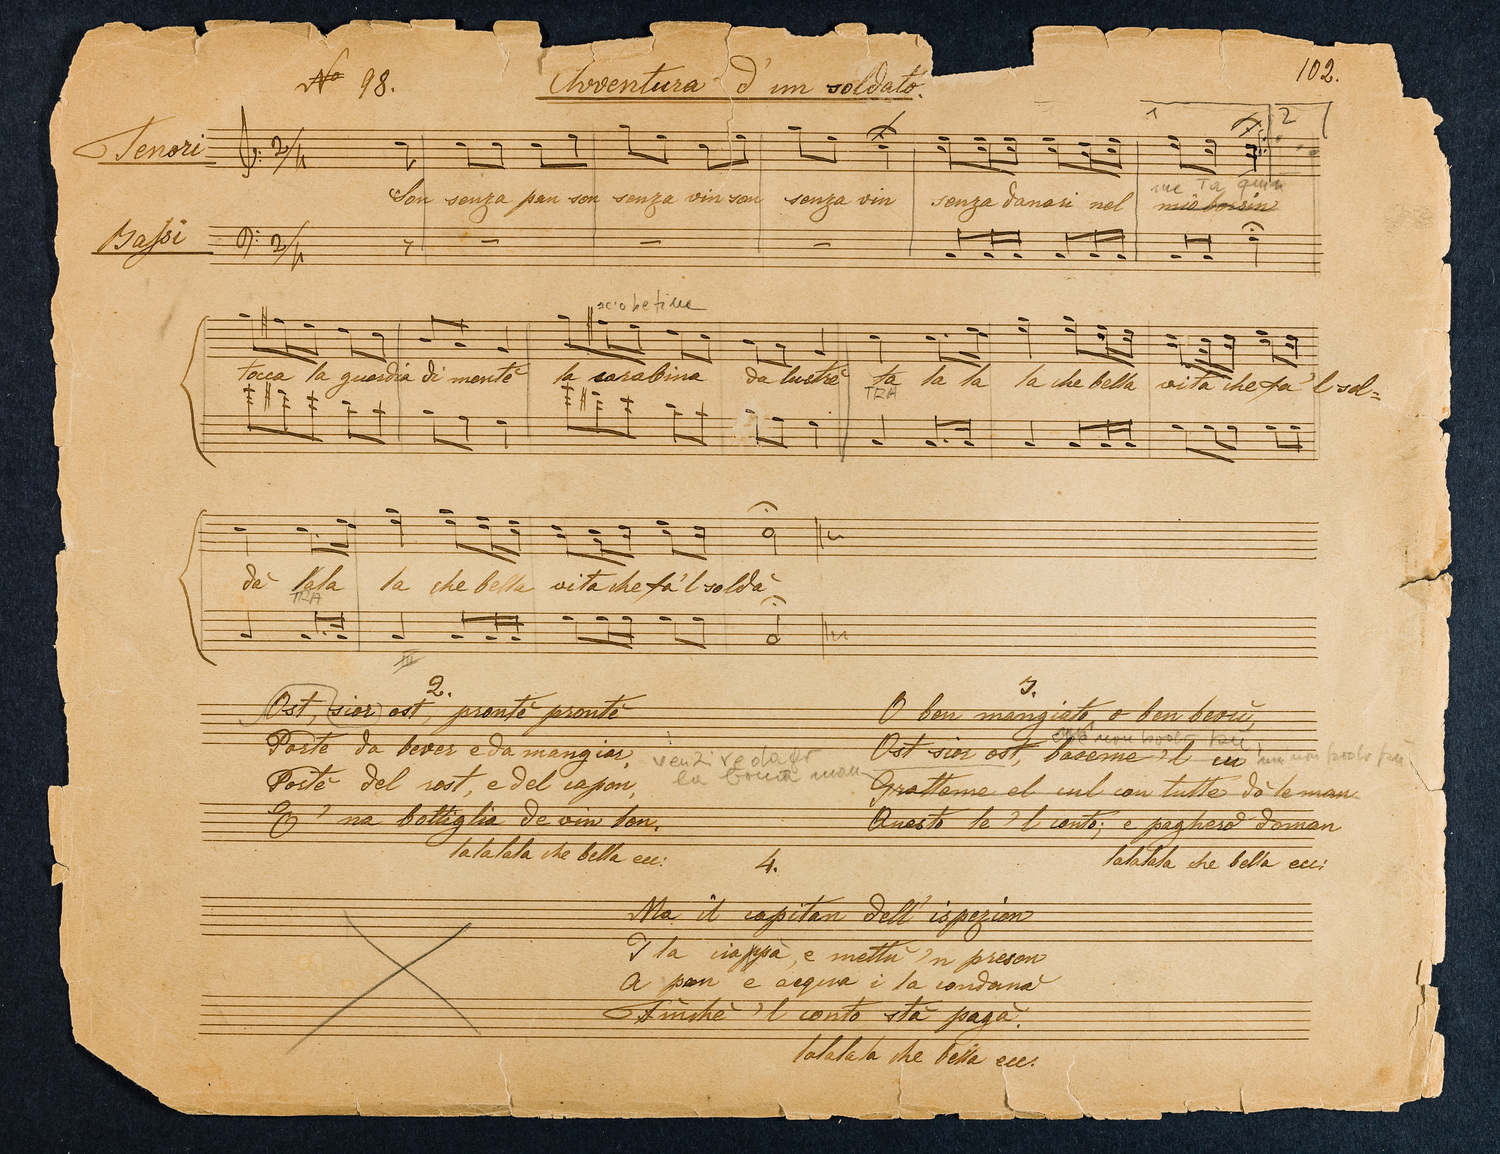 No 98.
Avventura d'un soldato.
102.
1 2
Tenori
2/4
Son senza pan son senza vin son senza vin senza danari nel mio borsin
Bassi
2/4
tocca la guardia di montè la carabina da lustrè la la la la che bella vita che fa'l sol=
TRA
dà lala la che bella vita che fa'l soldà
TRA
III
2.
Ost, sior ost, prontè prontè
Portè da bever e da mangiar,
Portè del rost, e del capon,
E 'na bottiglia de vin bon.
lalalala che bella ecc:
3.
O ben mangiato, o ben bevù,
Ost sior ost, baseme 'l cu
Gratteme el cul con tutte dò le man
Questo le 'l conto; e pagherò doman
lalalala che bella ecc:
4.
Ma il capitan dell' ispezion
I la ciappà, e mettù 'n preson
A pan e acqua i la condanà
Finchè 'l conto sta pagà.
lalalala che bella ecc.